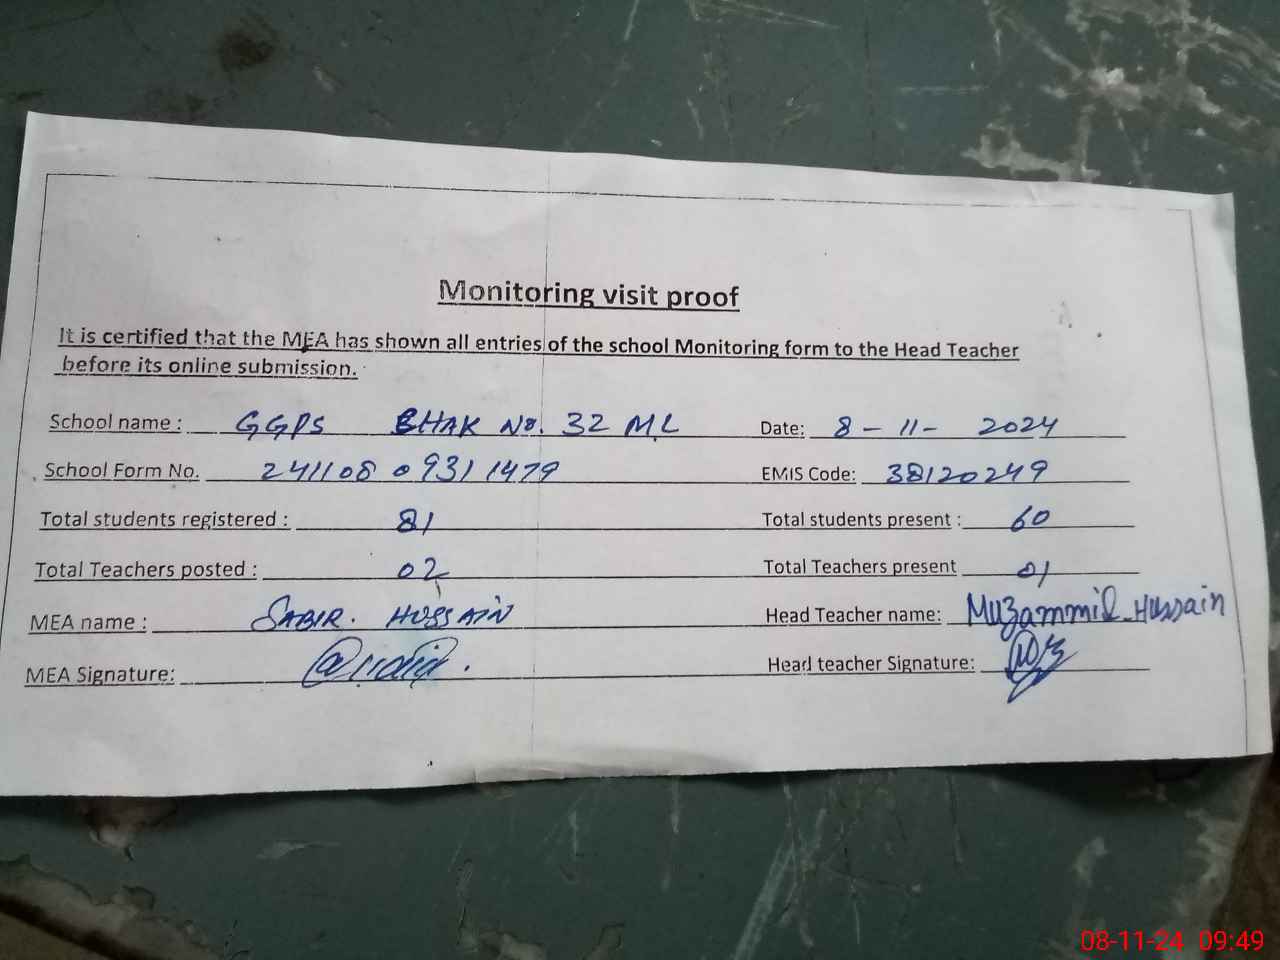 Monitoring visit proof
It is certified that the MEA has shown all entries of the school Monitoring form to the Head Teacher
before its online submission.
School name : GGPS CHAK No. 32 ML Date: 8-11-2024
School Form No. 241108 0931 1479 EMIS Code: 38120249
Total students registered : 81 Total students present : 60
Total Teachers posted : 02 Total Teachers present 01
MEA name : SABIR. HUSSAIN Head Teacher name: Muzammil Hussain
MEA Signature: Head teacher Signature:
08-11-24 09:49